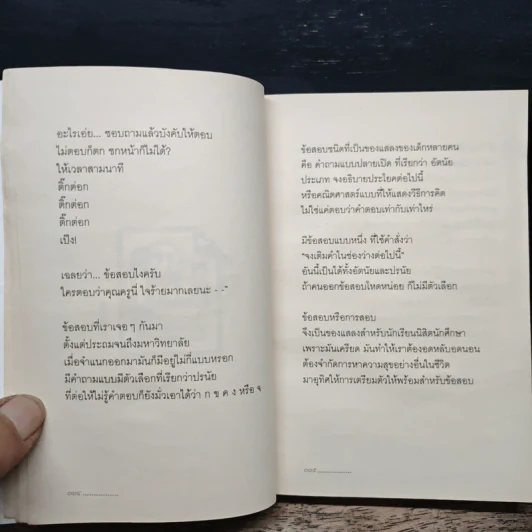 อะไรเอ่ย... ชอบถามแล้วบังคับให้ตอบ
ไม่ตอบก็ตก ชกหน้าก็ไม่ได้?
ให้เวลาสามนาที
ติ๊กต่อก
ติ๊กต่อก
ติ๊กต่อก
เป๊ง!
เฉลยว่า... ข้อสอบไงครับ
ใครตอบว่าคุณครูนี่ ใจร้ายมากเลยนะ - -"
ข้อสอบที่เราเจอๆ กันมา
ตั้งแต่ประถมจนถึงมหาวิทยาลัย
เมื่อจำแนกออกมามันก็มีอยู่ไม่กี่แบบหรอก
มีคำถามแบบมีตัวเลือกที่เรียกว่าปรนัย
ที่ต่อให้ไม่รู้คำตอบก็ยังมั่วเอาได้ว่า ก ข ค ง หรือ จ
ข้อสอบชนิดที่เป็นของแสลงของเด็กหลายคน
คือ คำถามแบบปลายเปิด ที่เรียกว่า อัตนัย
ประเภท จงอธิบายประโยคต่อไปนี้
หรือคณิตศาสตร์แบบที่ให้แสดงวิธีการคิด
ไม่ใช่แค่ตอบว่าคำตอบเท่ากับเท่าไหร่
มีข้อสอบแบบหนึ่ง ที่ใช้คำสั่งว่า
"จงเติมคำในช่องว่างต่อไปนี้"
อันนี้เป็นได้ทั้งอัตนัยและปรนัย
ถ้าคนออกข้อสอบโหดหน่อย ก็ไม่มีตัวเลือก
ข้อสอบหรือการสอบ
จึงเป็นของแสลงสำหรับนักเรียนนิสิตนักศึกษา
เพราะมันเครียด มันทำให้เราต้องอดหลับอดนอน
ต้องจำกัดการหาความสุขอย่างอื่นในชีวิต
มาอุทิศให้การเตรียมตัวให้พร้อมสำหรับข้อสอบ